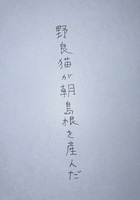 野良猫が朝島根を産んだ